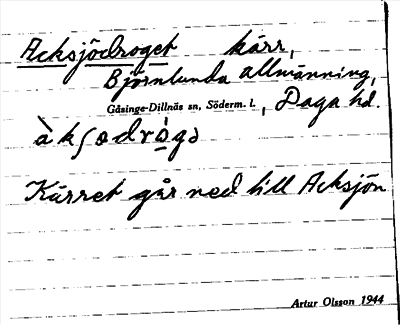 Acksjödroget kärr,
Björnlunda allmänning,
Gåsinge-Dillnäs sn, Söderm. l., Daga hd.
àkʃødrò̱gə
Kärret går ned till Acksjön
Artur Olsson 1944